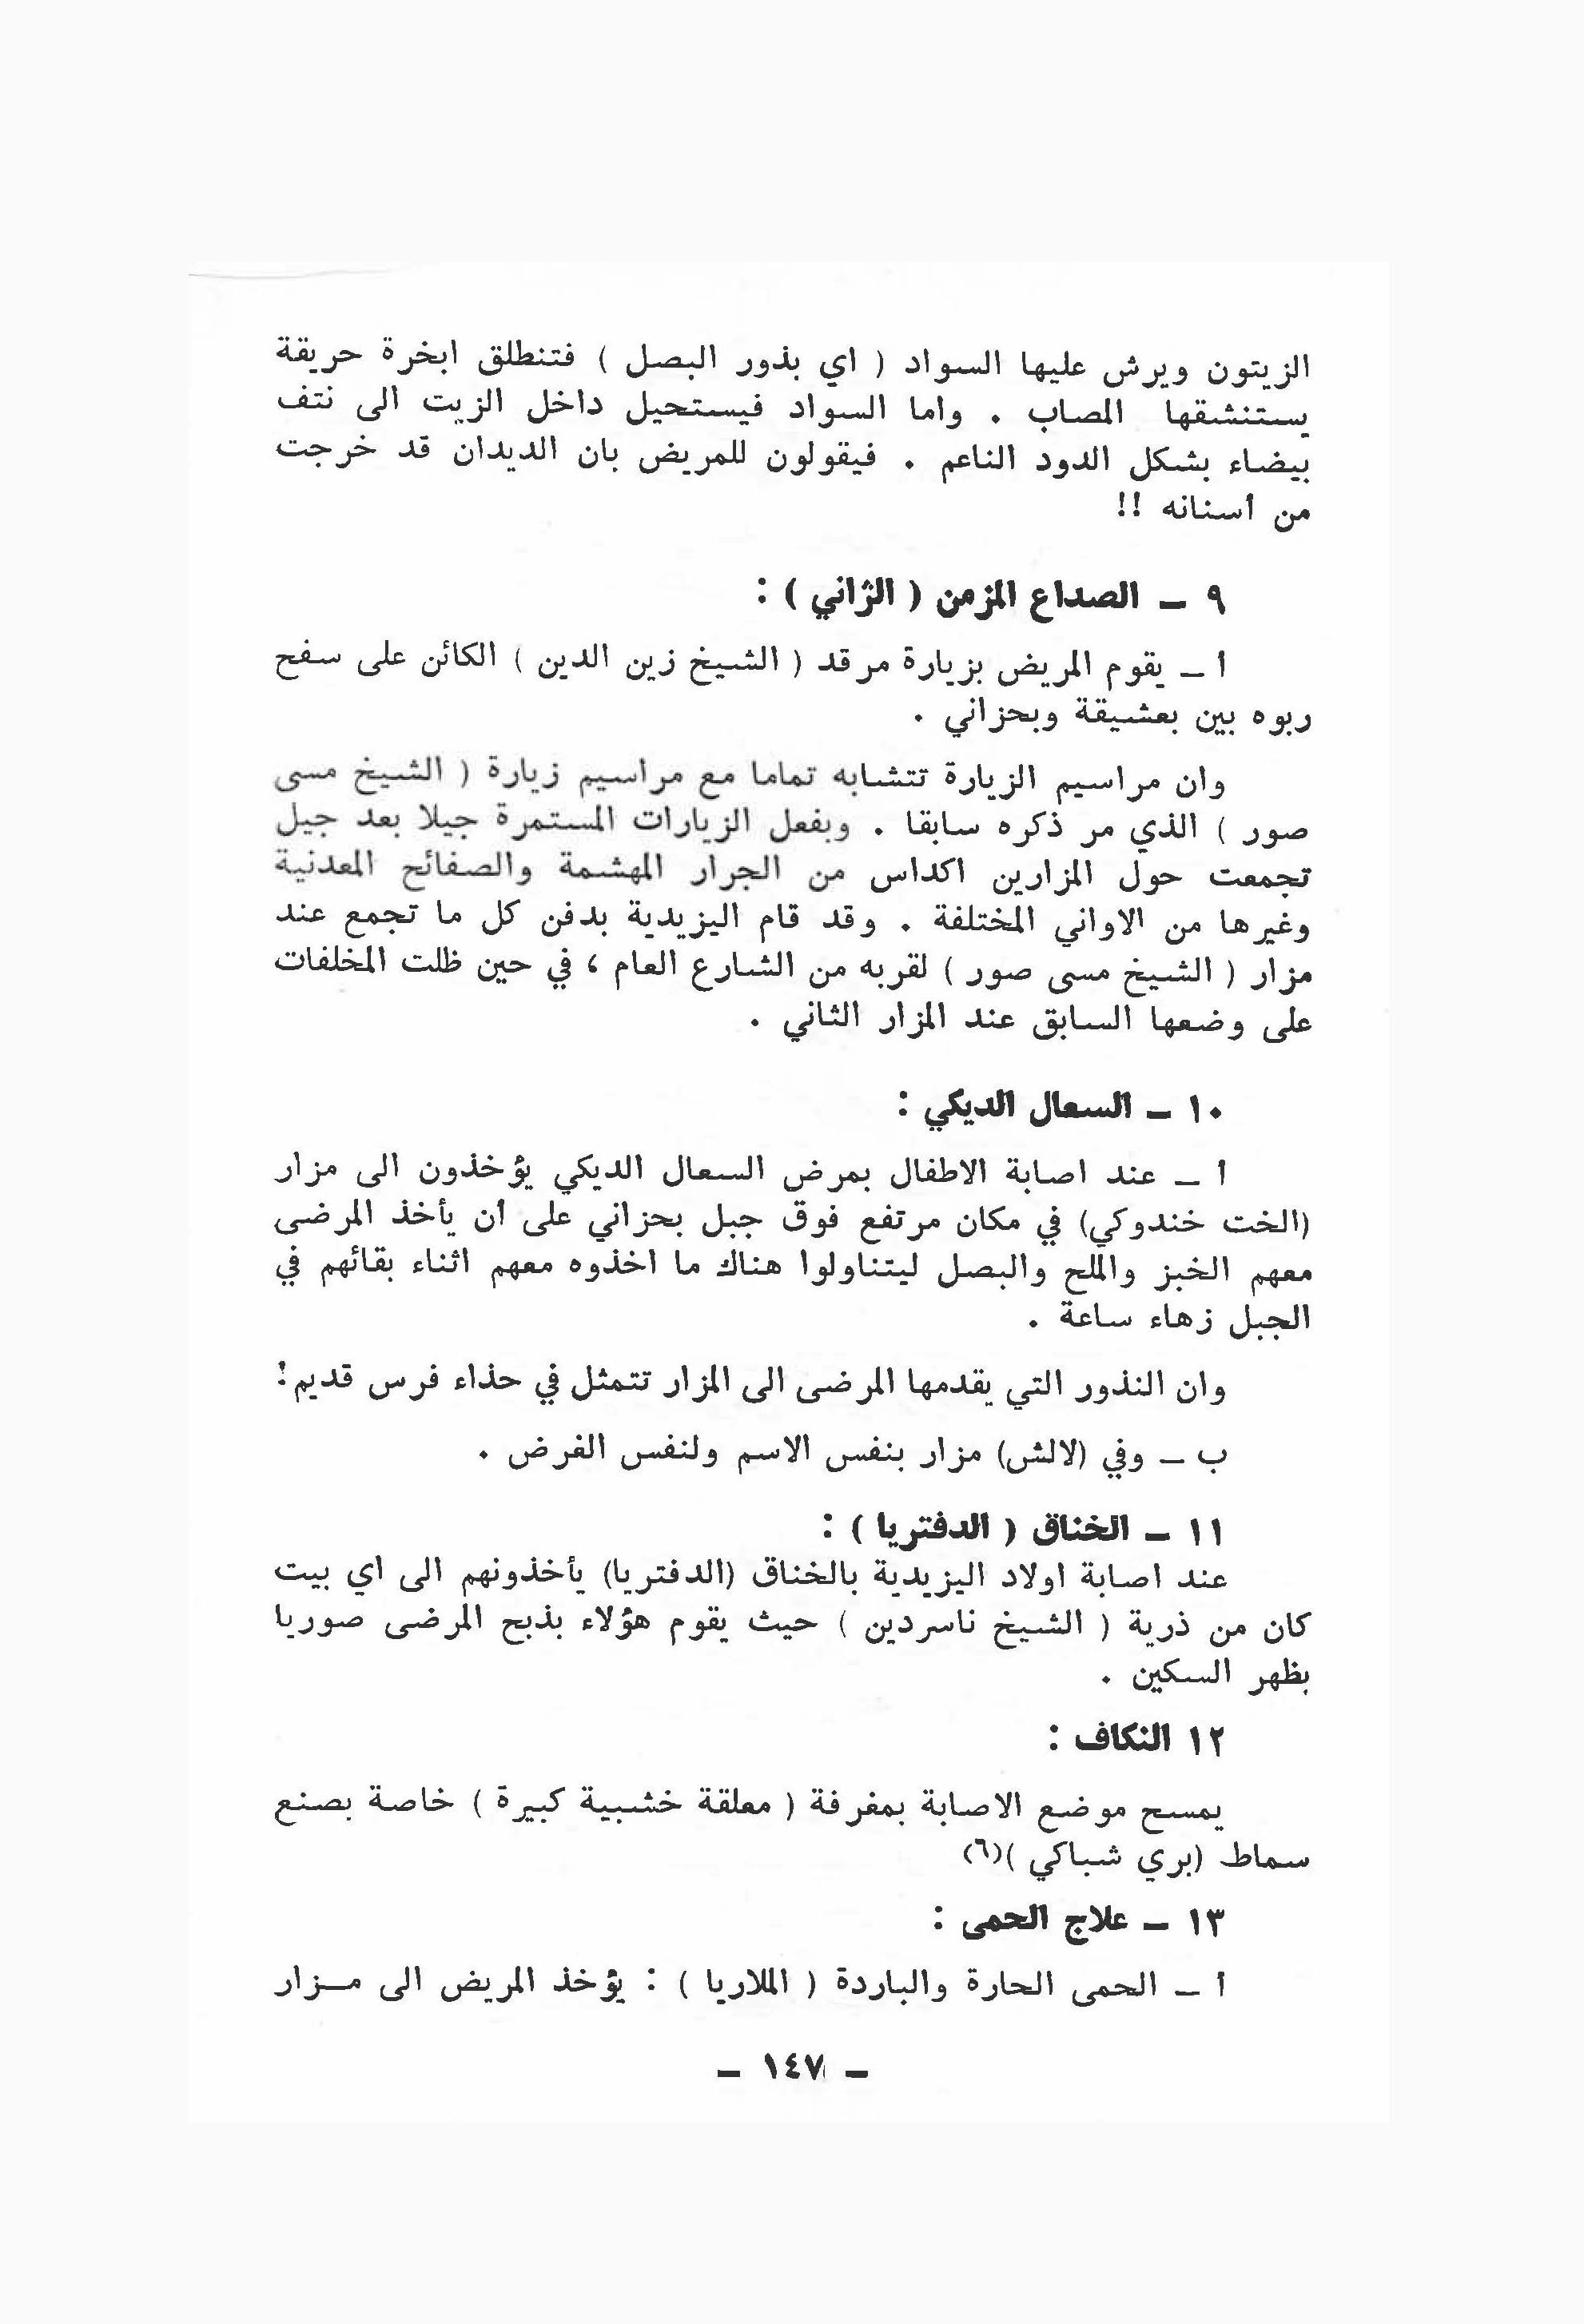 الزيتون ويرش عليها السواد ( اي بذور البصل ) فتنطلق ابخرة حريقة
يستنشقها المصاب . واما السواد فيستحيل داخل الزيت الى نتف
بيضاء بشكل الدود الناعم . فيقولون للمريض بان الديدان قد خرجت
من أسنانه !!
٩ ــ الصداع المزمن ( الژاني ) :
أ ــ يقوم المريض بزيارة مرقد ( الشيخ زين الدين ) الكائن على سفح
ربوه بين بعشيقة وبحزاني .
وان مراسيم الزيارة تتشابه تماما مع مراسيم زيارة ( الشيخ مسى
صور ) الذي مر ذكره سابقا . وبفعل الزيارات المستمرة جيلا بعد جيل
تجمعت حول المزارين اكداس من الجرار المهشمة والصفائح المعدنية
وغيرها من الاواني المختلفة . وقد قام اليزيدية بدفن كل ما تجمع عند
مزار ( الشيخ مسى صور ) لقربه من الشارع العام ، في حين ظلت المخلفات
على وضعها السابق عند المزار الثاني .
١٠ ــ السعال الديكي :
أ ــ عند اصابة الاطفال بمرض السعال الديكي يؤخذون الى مزار
(الخت خندوكي) في مكان مرتفع فوق جبل بحزاني على أن يأخذ المرضى
معهم الخبز والملح والبصل ليتناولوا هناك ما اخذوه معهم اثناء بقائهم في
الجبل زهاء ساعة .
وان النذور التي يقدمها المرضى الى المزار تتمثل في حذاء فرس قديم!
ب ــ وفي (لالش) مزار بنفس الاسم ولنفس الغرض .
١١ ــ الخناق ( الدفتريا ) :
عند اصابة اولاد اليزيدية بالخناق (الدفتريا) يأخذونهم الى اي بيت
كان من ذرية ( الشيخ ناسردين ) حيث يقوم هؤلاء بذبح المرضى صوريا
بظهر السكين .
١٢ النكاف :
يمسح موضع الاصابة بمغرفة ( معلقة خشبية كبيرة ) خاصة بصنع
سماط (بري شباكي )(٦)
١٣ ــ علاج الحمى :
أ ــ الحمى الحارة والباردة ( الملاريا ) : يؤخذ المريض الى مـزار
ــ ١٤٧ ــ